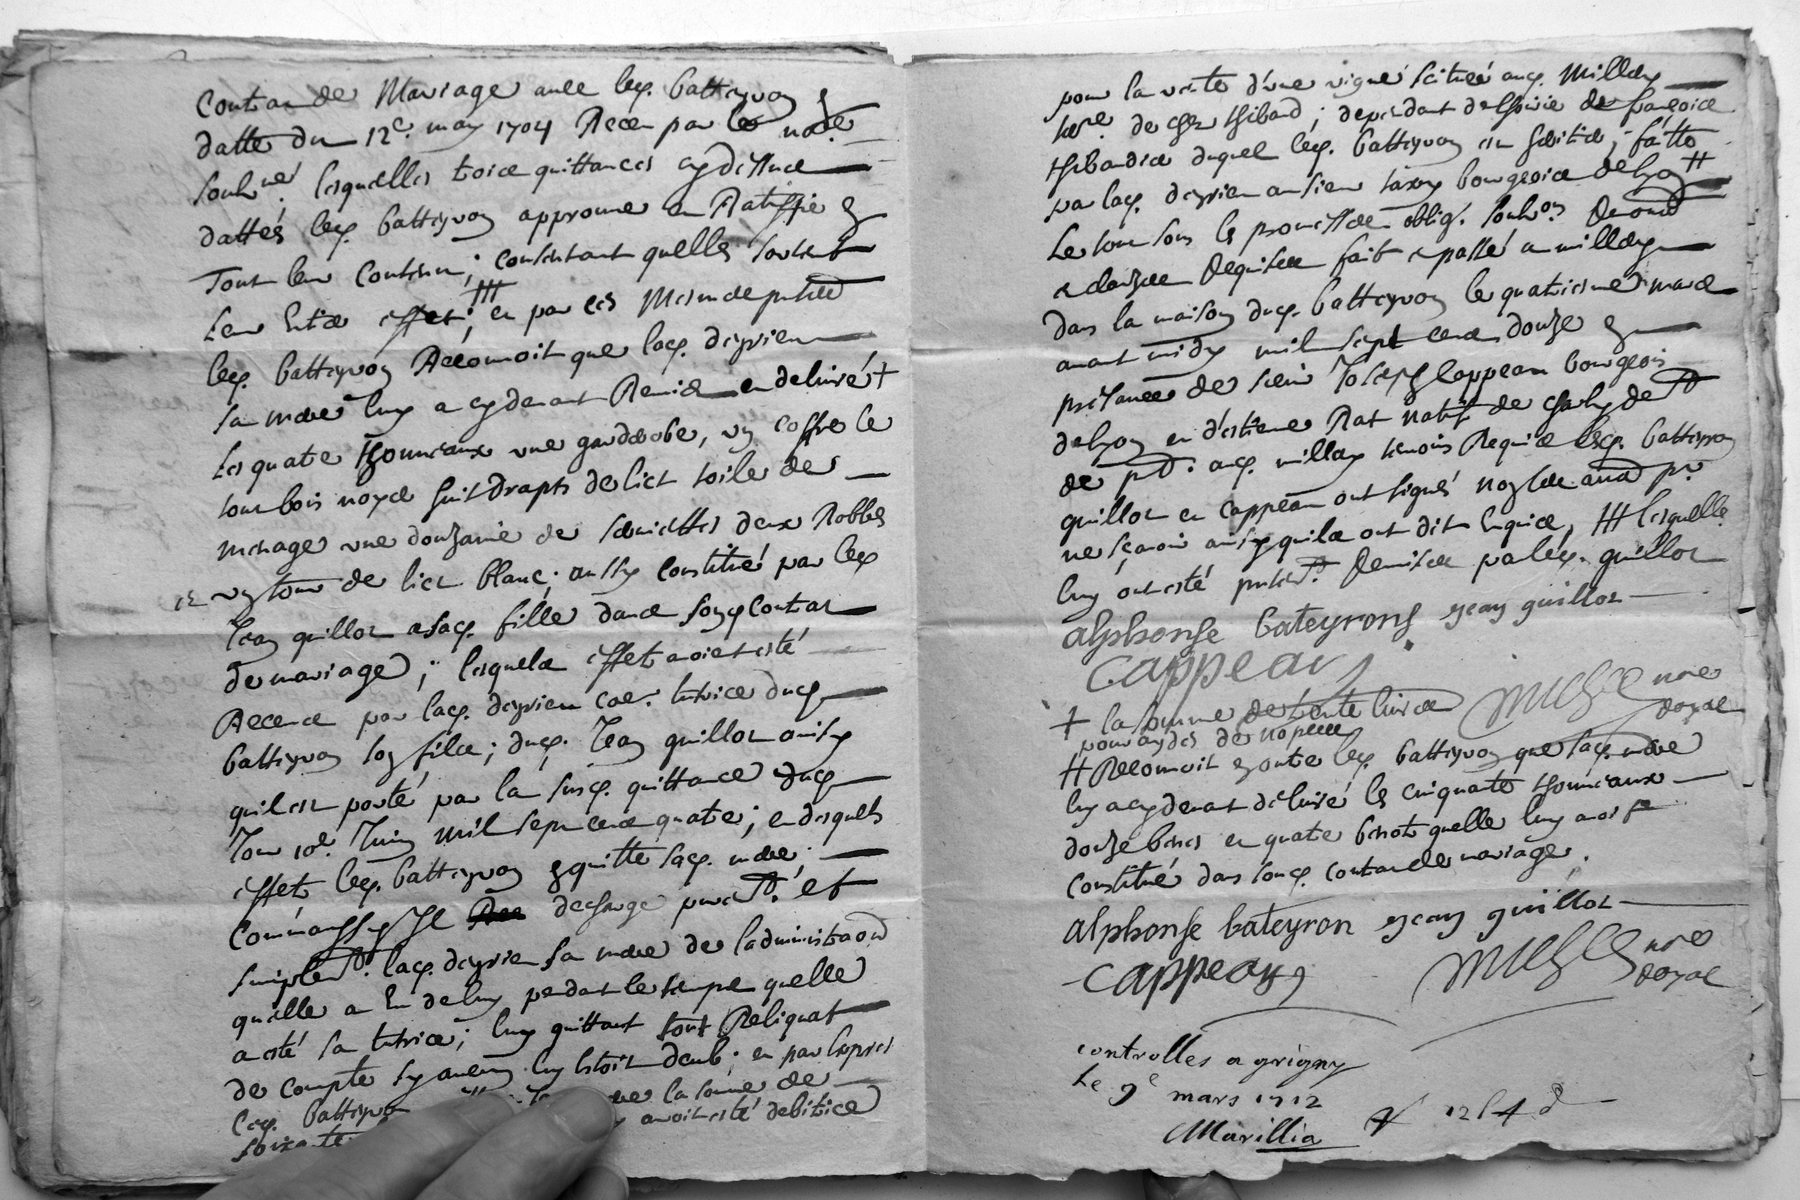 Contrat de Mariage avec led. batteyron &
datte du 12e. may 1704 Receu par le nore.
soubne. lesquelles trois quittances cydessus
dattés led. batteyron approuve en Ratiffie &
Tout leur contenu; consentant quelles sortent
Leur Entier effet; ⧻ en par ces Mesmes pntes
led. batteyron Reconnoit que lad. deyrieu
sa mere luy a cydevant Remis en delivré +
Les quatre thonneaux une garderobe, un coffre le
tout bois noyer huit draps de lict toile de
menage une douzaine de serviettes deux Robbes
un tour de lict blanc; aussy constitué par led
Jean guillot a sad. fille dans son contrat
de mariage; lesquels effet avoient esté
Receus par lad. deyrieu tutrice dud
batteyron son fils; dud. Jean guillot ainsy
quil est porté par la susd. quittance dud
Jour 10e. Juin mil sept cens quatre; en desquels
effet led. batteyron &quitte sad. mere;
Comm'aussy Il decharge puremt. et
simplemt. lad. deyrieu sa mere de ladministraon
quelle a Eu de luy pendant le temps quelle
a esté sa tutrice; luy quittant tout Reliquat
de compte sy aucun luy Estoit deub; en par Exprés
led. batteyron la somme de
soixante avoit esté debitrice
pour la vente d'une vigne scituée aud. Millery
terre. de chez thibaud; dependant de lhoirie de françoise
thibaudier duquel led. batteyron est heritier; faitte
par lad. deyrieu au sieur bourgeois de lyon ⧺
Le tout sous les promesses oblig. soubon. Renond
& clauses Requises fait & passé a millery
dans la maison dud. batteyron le quatriesme mars
avant midy mil sept cens douze &
presance de sieur Joseph Cappeau bourgeois
de lyon en d'estienne Rat natif de charly de
de pnt. aud. millery temoins Requis led. batteyron
guillot en cappeau ont signés non les autres pr.
ne sçavoir ainsy quils ont dit Enquis, ⧻ lesquelles
luy ont esté pntemt. Remises par led. guillot
alphonse bateyron jean guillot
Cappeau
michel nore
Royal
+ la somme de trente livres
pour aydes de nopces
⧺ Reconnoit &outre led. batteyron que sad. mere
luy a cydevant delivré les cinquante thonneaux
douze benes en quatre benots quelle luy avoit
constitué dans soud. contract de mariage.
alphonse bateyron jean guillot
Cappeau
michel nore
Royal
controlles a grigny
Le 9e mars 1712
Marillia 12 s 4 d